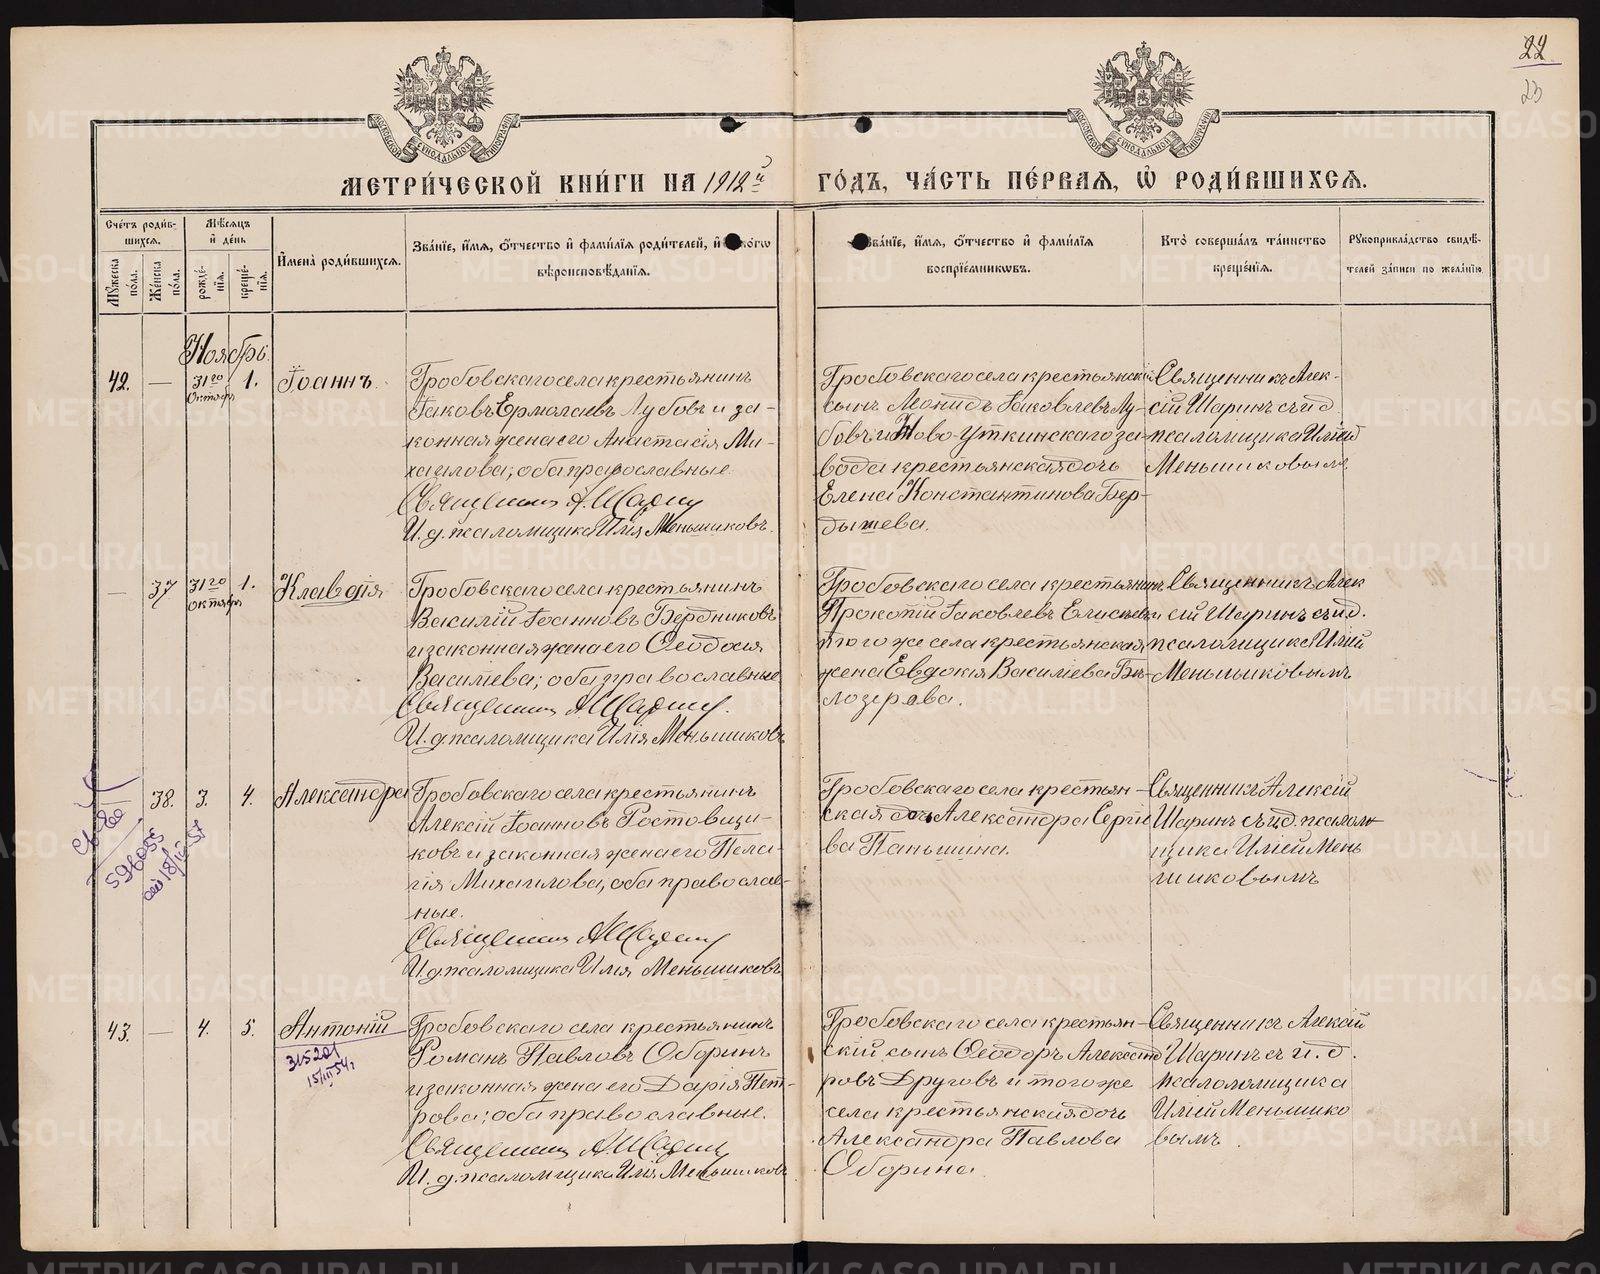 22
23
МЕТРИ́ЧЕСКОЙ КНИ́ГИ НА 1912й ГО́ДЪ, ЧА́СТЬ ПЕ́РВАЯ, Ѡ҆ РОДИ́ВШИХСЯ.
Сче́тъ роди́в-
шихся.
Мѣ́сяцъ
и҆ де́нь
Му́жеска
по́ла.
Же́нска
по́ла.
рожде́-
нїя.
креще́-
нїя.
И҆мена̀ роди́вшихся.
Зва́нїе, и҆́мя, ѻ҆́тчество и҆ фами́лїя роди́телей, и҆
вѣроисповѣ́данїя.
Зва́нїе, и҆́мя, ѻ҆́тчество и҆ фами́лїя
воспрїе́мниковъ.
Кто̀ соверша́лъ та́инство
креще́нїя.
Рукоприкла́дство свидѣ́-
телей за́писи по жела́нїю
Ноябрь.
42. — 31го Октября 1. Іоаннъ.
Гробовскаго села крестьянинъ
Іаковъ Ермолаевъ Лубовъ и за-
конная жена его Анастасія Ми-
хаилова; оба православные.
Священникъ А. Шаринъ
И. д. псаломщика Илія Меньшиковъ.
Гробовскаго села крестьянскій
сынъ Леонидъ Іаковлевъ Лу-
бовъ и Ново-Уткинскаго за-
вода крестьянская дочь
Елена Константинова Бер-
дышева.
Священникъ Алек-
сій Шаринъ съ и д
псаломщика Иліей
Меньшиковымъ
— 37 31го Октября 1. Клавдія
Гробовскаго села крестьянинъ
Василій Іоанновъ Бердниковъ
и законная жена его Ѳеодосія
Васильева; оба православные
Священникъ А Шаринъ.
И. д. псаломщика Илія Меньшиковъ
Гробовскаго села крестьянинъ
Прокопій Іаковлевъ Елисѣевъ и
того же села крестьянская
жена Евдокія Василіева Бѣ-
лозерова.
Священникъ Алек
сій Шаринъ съ и д.
псаломщика Иліей
Меньшиковымъ
38. 3. 4. Александра
Гробовскаго села крестьянинъ
Алексій Іоанновъ Ростовщи-
ковъ и законная жена его Пела-
гія Михаилова, оба православ-
ные.
Священникъ А Шаринъ
И. д. псаломщика Илія Меньшиковъ
Гробовскаго села крестьян-
ская дочь Александра Сергіе
ва Паньшина.
Священникъ Алексій
Шаринъ съ и д. псалом-
щика Иліей Мень
шиковымъ
598055
18/IV-57
43. — 4. 5. Антоній
315201
15/III 54г
Гробовскаго села крестьянинъ
Романъ Павловъ Оборинъ
и законная жена его Дарія Пет-
рова; оба православные.
Священникъ А. Шаринъ
И. д. псаломщика Илія Меньшиковъ
Гробовскаго села крестьян-
скій сынъ Ѳеодоръ Александ
ровъ Друговъ и того же
села крестьянская дочь
Александра Павлова
Оборина.
Священникъ Алексій
Шаринъ съ и. д.
псаломщика
Иліей Меньшико
вымъ
METRIKI.GASO-URAL.RU